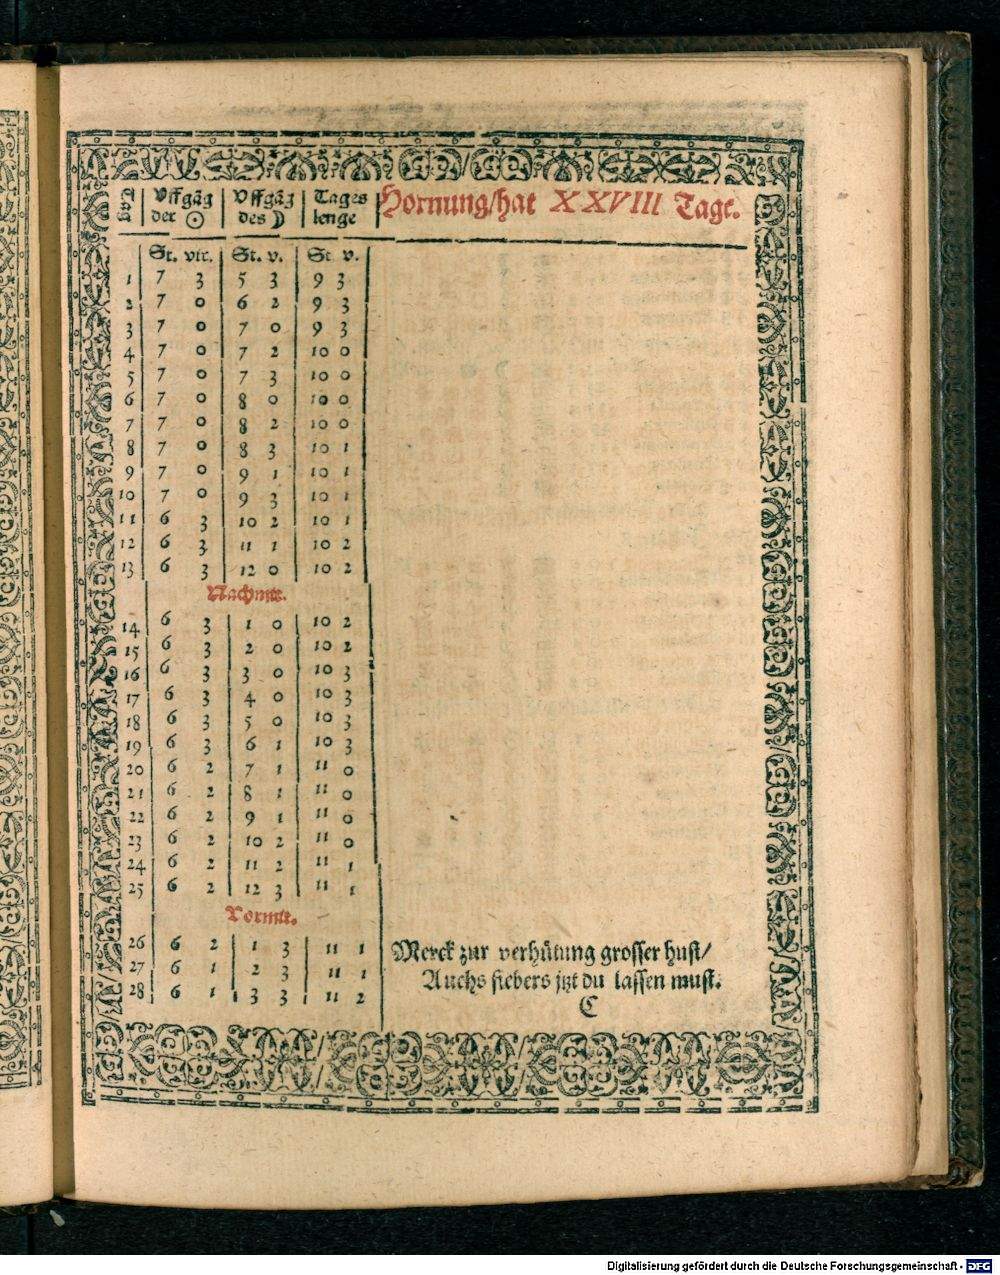 Tag | Vffgãg | Vffgãg | Tages | Hornung/hat XXVIII Tage.
der ☉ | des ☽ | lenge
St. vir. | St. v. | St v.
1 | 7 3 | 5 3 | 9 3
2 | 7 0 | 6 2 | 9 3
3 | 7 0 | 7 0 | 9 3
4 | 7 0 | 7 2 | 10 0
5 | 7 0 | 7 3 | 10 0
6 | 7 0 | 8 0 | 10 0
7 | 7 0 | 8 2 | 10 0
8 | 7 0 | 8 3 | 10 1
9 | 7 0 | 9 1 | 10 1
10 | 7 0 | 9 3 | 10 1
11 | 6 3 | 10 2 | 10 1
12 | 6 3 | 11 1 | 10 2
13 | 6 3 | 12 0 | 10 2
Nachmit.
14 | 6 3 | 1 0 | 10 2
15 | 6 3 | 2 0 | 10 2
16 | 6 3 | 3 0 | 10 3
17 | 6 3 | 4 0 | 10 3
18 | 6 3 | 5 0 | 10 3
19 | 6 3 | 6 1 | 10 3
20 | 6 2 | 7 1 | 11 0
21 | 6 2 | 8 1 | 11 0
22 | 6 2 | 9 1 | 11 0
23 | 6 2 | 10 2 | 11 0
24 | 6 2 | 11 2 | 11 1
25 | 6 2 | 12 3 | 11 1
Vormit.
26 | 6 2 | 1 3 | 11 1
27 | 6 1 | 2 3 | 11 1
28 | 6 1 | 3 3 | 11 2
Merck zur verhütung grosser hust/
Auchs fiebers jtzt du lassen must.
C
Digitalisierung gefördert durch die Deutsche Forschungsgemeinschaft - DFG